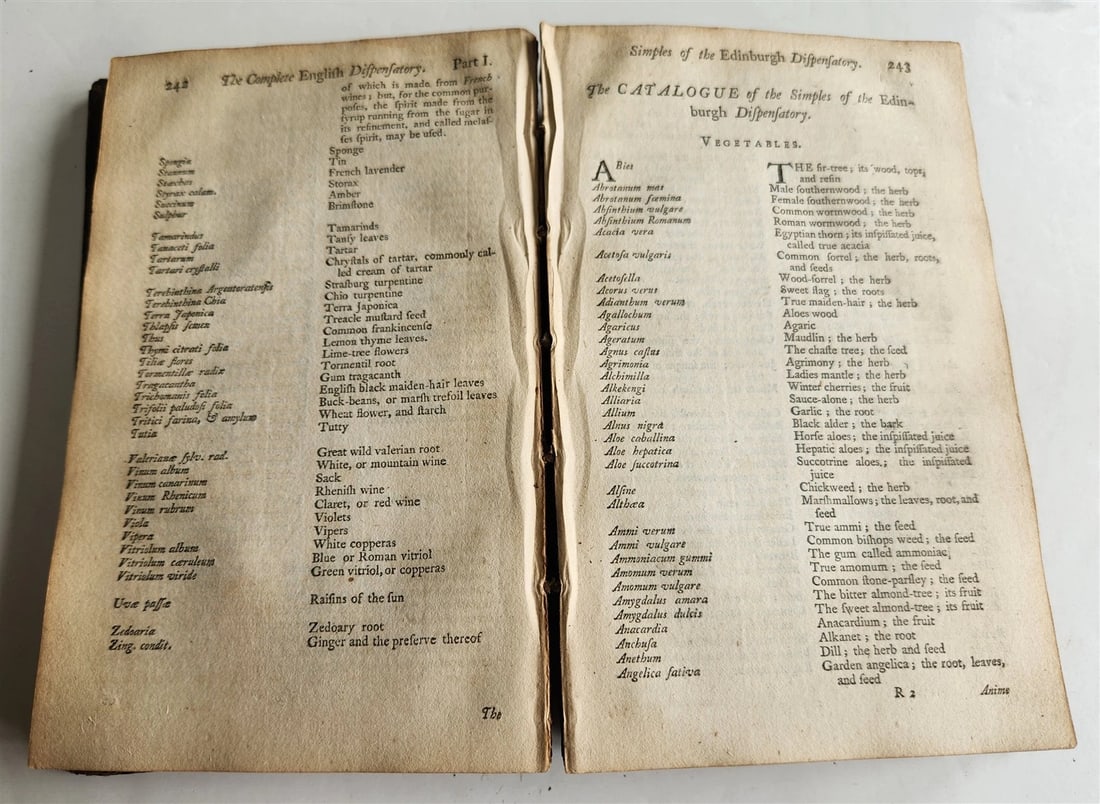 242 The Complete Engliſh Diſpenſatory. Part I.
of which is made from French
wines; but, for the common pur-
poſes, the ſpirit made from the
ſyrup running from the ſugar in
its refinement, and called melaſ-
ſes ſpirit, may be uſed.
Spongia Sponge
Stannum Tin
Stœchas French lavender
Styrax calam. Storax
Succinum Amber
Sulphur Brimſtone
Tamarindus Tamarinds
Tanaceti folia Tanſy leaves
Tartarum Tartar
Tartari cryſtalli Chryſtals of tartar, commonly cal-
led cream of tartar
Terebinthina Argentoratenſis Straſburg turpentine
Terebinthina Chia Chio turpentine
Terra Japonica Terra Japonica
Thlaſpis ſemen Treacle muſtard ſeed
Thus Common frankincenſe
Thymi citrati folia Lemon thyme leaves.
Tiliæ flores Lime-tree flowers
Tormentillæ radix Tormentil root
Tragacantha Gum tragacanth
Trichomanis folia Engliſh black maiden-hair leaves
Trifolii paludoſi folia Buck-beans, or marſh trefoil leaves
Tritici farina, & amylum Wheat flower, and ſtarch
Tutia Tutty
Valerianæ ſylv. rad. Great wild valerian root
Vinum album White, or mountain wine
Vinum canarinum Sack
Vinum Rhenicum Rheniſh wine
Vinum rubrum Claret, or red wine
Viola Violets
Vipera Vipers
Vitriolum album White copperas
Vitriolum cæruleum Blue or Roman vitriol
Vitriolum viride Green vitriol, or copperas
Uvæ paſſæ Raiſins of the ſun
Zedoaria Zedoary root
Zing. condit. Ginger and the preſerve thereof
The
Simples of the Edinburgh Diſpenſatory. 243
The CATALOGUE of the Simples of the Edin-
burgh Diſpenſatory.
VEGETABLES.
ABies THE fir-tree; its wood, tops,
and reſin
Abrotanum mas Male ſouthernwood; the herb
Abrotanum fœmina Female ſouthernwood; the herb
Abſinthium vulgare Common wormwood; the herb
Abſinthium Romanum Roman wormwood; the herb
Acacia vera Egyptian thorn; its inſpiſſated juice,
called true acacia
Acetoſa vulgaris Common ſorrel; the herb, roots,
and ſeeds
Acetoſella Wood-ſorrel; the herb
Acorus verus Sweet flag; the roots
Adianthum verum True maiden-hair; the herb
Agallochum Aloes wood
Agaricus Agaric
Ageratum Maudlin; the herb
Agnus caſtus The chaſte tree; the ſeed
Agrimonia Agrimony; the herb
Alchimilla Ladies mantle; the herb
Alkekengi Winter cherries; the fruit
Alliaria Sauce-alone; the herb
Allium Garlic; the root
Alnus nigra Black alder; the bark
Aloe caballina Horſe aloes; the inſpiſſated juice
Aloe hepatica Hepatic aloes; the inſpiſſated juice
Aloe ſuccotrina Succotrine aloes,; the inſpiſſated
juice
Alſine Chickweed; the herb
Althæa Marſhmallows; the leaves, root, and
ſeed
Ammi verum True ammi; the ſeed
Ammi vulgare Common biſhops weed; the ſeed
Ammoniacum gummi The gum called ammoniac,
Amomum verum True amomum; the ſeed
Amomum vulgare Common ſtone-parſley; the ſeed
Amygdalus amara The bitter almond-tree; its fruit
Amygdalus dulcis The ſweet almond-tree; its fruit
Anacardia Anacardium; the fruit
Anchuſa Alkanet; the root
Anethum Dill; the herb and ſeed
Angelica ſativa Garden angelica; the root, leaves,
and ſeed
R 2 Anime